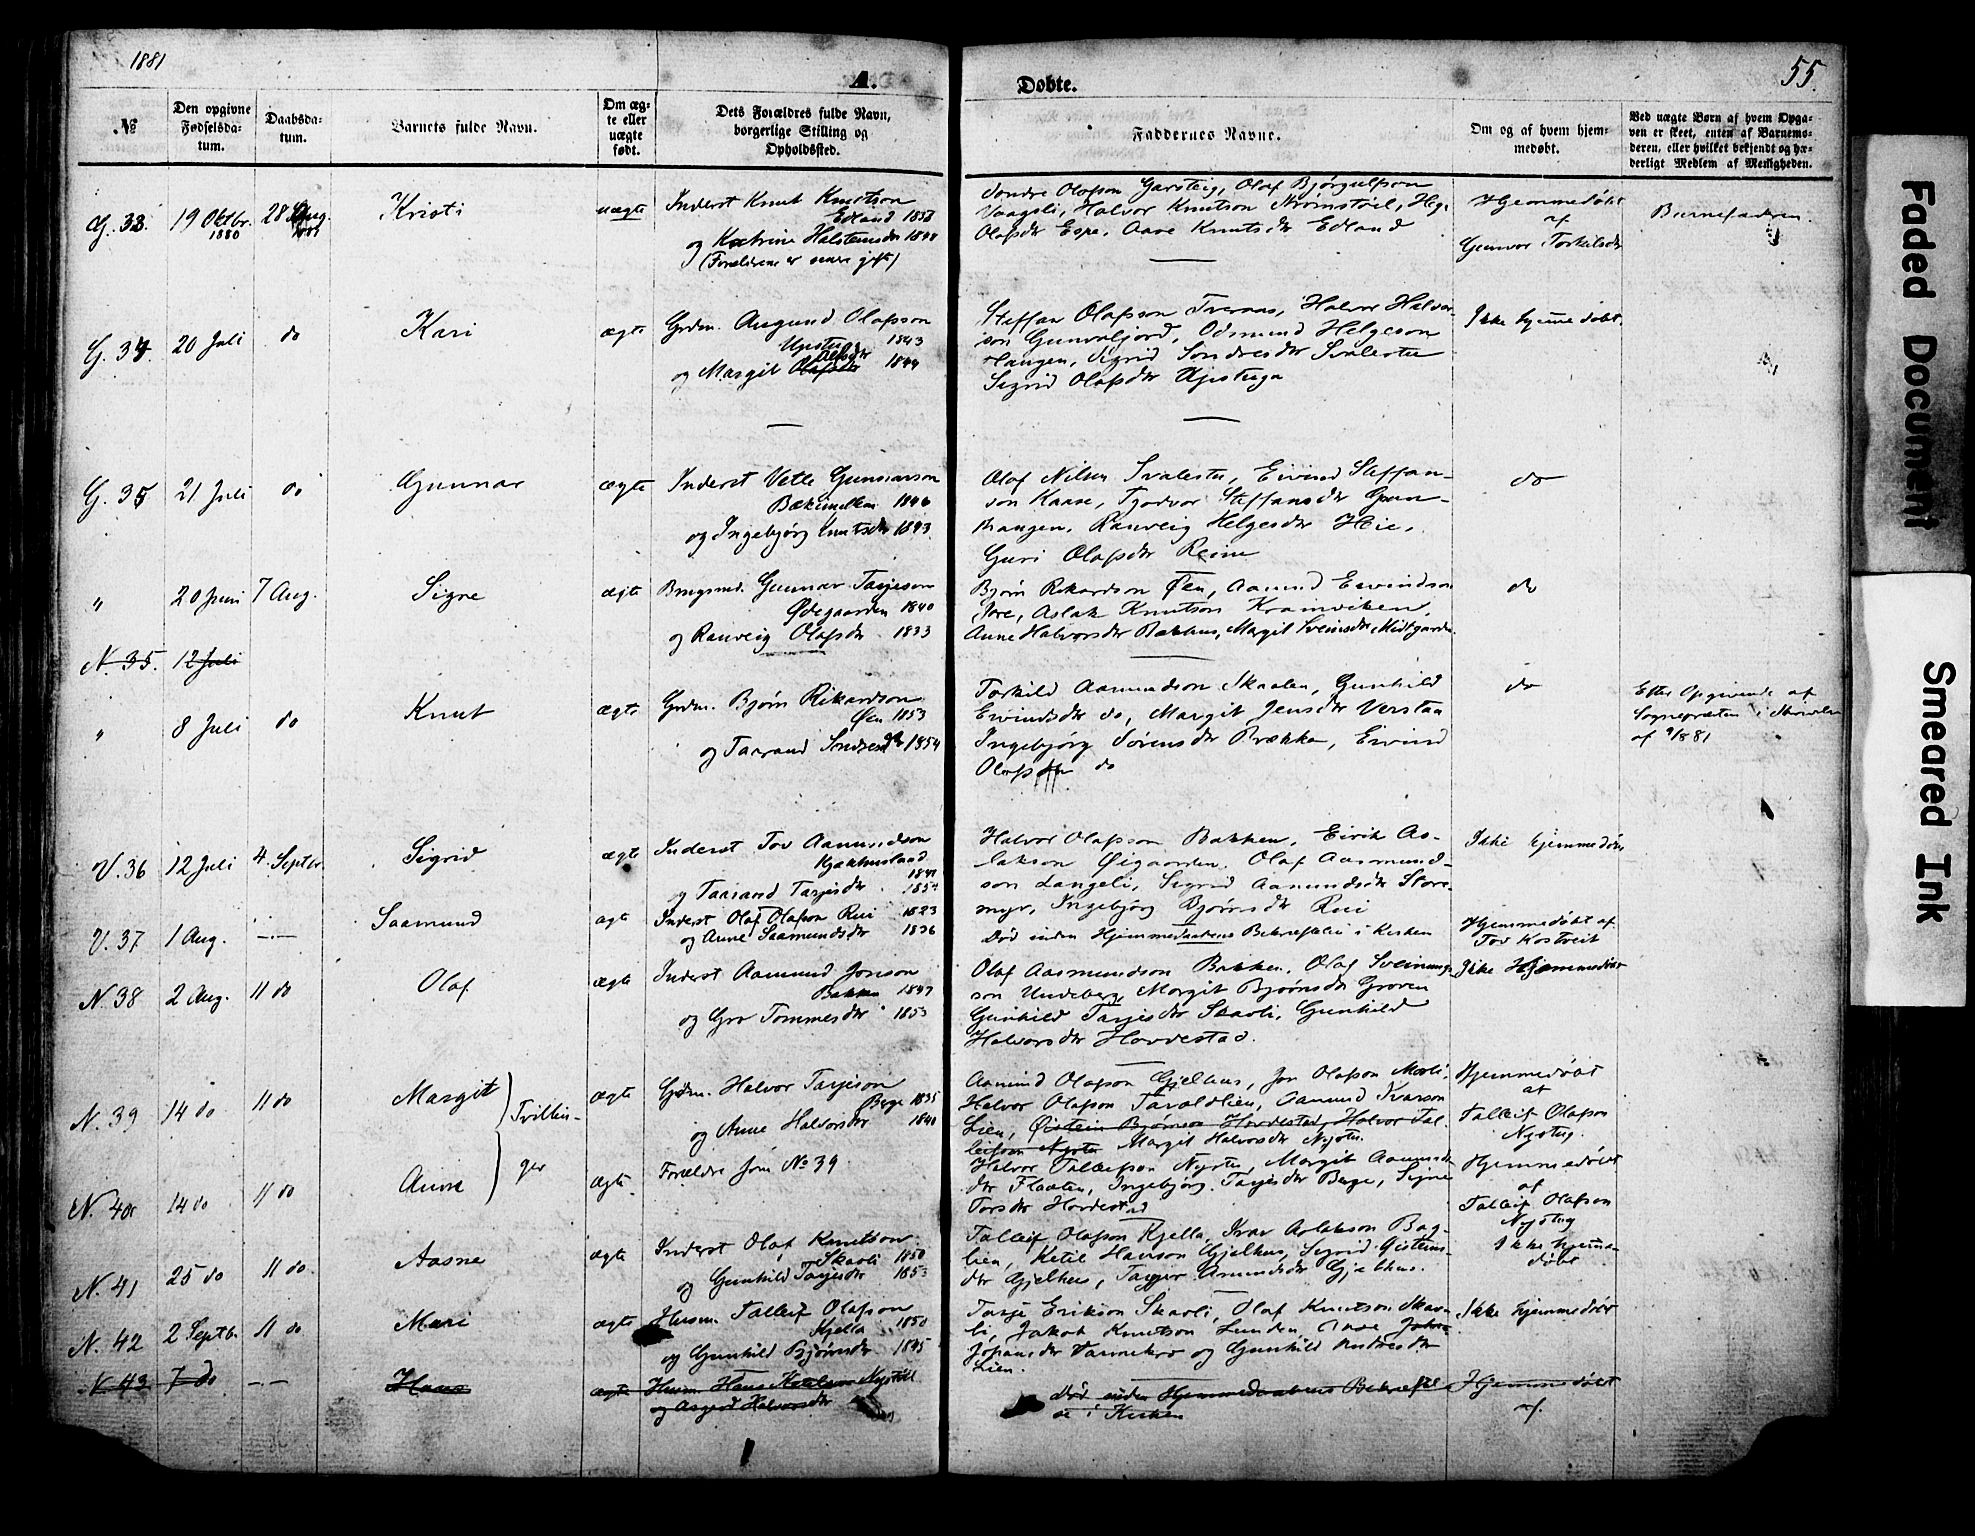 1881
A.
Døbte.
55.
№
Den opgivne Fødselsdatum.
Daabsdatum.
Barnets fulde Navn.
Om ægte eller uægte født.
Dets Forældres fulde Navn, borgerlige Stilling og Opholdssted.
Faddernes Navne.
Om og af hvem hjemmedøbt.
Ved uægte Børn af hvem Opgaven er skeet, enten af Barnemoderen, eller hvilket bekjendt og hæderligt Medlem af Menigheden.
G. 33. 19 Oktbr. 1880 28 Aug. Kristi uægte
Inderst Knut Knutson
Edland 1853
og Katrine Halsteinsdr 1848
(Forældrene er senere gift)
Sondre Olafson Garsteig, Olaf Bjørgulfson
Vaagsli, Halvor Knutson Strømstøil, Heg.
Olafsdr Espe, Aase Knutsdr Edland
Hjemmedøbt
af
Gunvor Torkilsdr
Barnefadren.
G. 34 20 Juli do Kari ægte
Grdm. Augund Olafson
1843
og Margit Olafsdr 1844
Steffan Olafson Tveraas, Halvor Halvor-
son Gunvaljord, Odmund Helgeson
Haugen, Sigrid Sondresdr Svalestu
Sigrid Olafsdr
Ikke hjemmedøbt.
G. 35 21 Juli do Gunnar ægte
Inderst Vetle Gunnarson
1846
og Ingebjørg Knutsdr 1843
Olaf Nilsen Svalestu, Eivind Steffan-
son Kaase, Tjodvor Steffansdr Grun-
Haugen, Ranveig Helgesdr Heie,
Guri Olafsdr Reine
do
" 20 Juni 7 Aug. Signe ægte
Brugsmd. Gunnar Tarjeson
Ødegaarden 1840
og Ranveig Olafsdr 1833
Bjørn Rikardson Øen, Aamund Eivindson
Øre, Aslak Knutson Kramviken,
Anne Halvorsdr Bakhus, Margit Sveinsdr Midtgarden
do
N. 35. 12 Juli
" 8 Juli do Knut ægte
Grdm. Bjørn Rikardson
Øen 1853
og Taarand Sondresdr 1854
Torkild Aamundson Skaalen, Gunhild
Eivindsdr do, Margit Jensdr Verstaa
Ingebjørg Sørensdr Brække, Eivind
Olafson do
do
Efter Opgivende af
Sognepræsten i
af 9/8 81
V. 36 12 Juli 4. Septbr. Sigrid ægte
Inderst Tov Aamundson
1849
og Taarand Tarjesdr 1854
Halvor Olafson Bakken, Eirik As-
lakson Øigaarden, Olaf Aasmund-
son Langeli, Sigrid Aamundsdr Store-
myr, Ingebjørg Bjørnsdr Rui
Ikke hjemmedøbt
V. 37 1 Aug. —.— Saamund ægte
Inderst Olaf Olafson Rui 1823
og Anne Saamundsdr 1836
Død inden Hjemmedaabens Bekræftelse i Kirken
Hjemmedøbt af
Tov Kostveit
N. 38 2 Aug. 11 do Olaf ægte
Inderst Aamund Jonson
Bakken 1847
og Gro Tommesdr 1853
Olaf Aasmundson Bakken, Olaf Sveinung-
son Undeberg, Margit Bjørnsdr Groven
Gunhild Tarjesdr Skaoli, Gunhild
Halvorsdr Hovdestad.
Ikke Hjemmedøbt
N. 39 14 do 11 do Margit
Tvillin-
ger
ægte
Grdm. Halvor Tarjeson
Berge 1835
og Anne Halvorsdr 1840
Aamund Olafson Gjelhus, Jon Olafson Moeli,
Halvor Olafson Taraldlien, Aamund Ivarson
Lien, Øistein Bjørnson Hovdestad, Halvor Tal-
leifson Nystu Margit Halvorsdr Nystu.
Hjemmedøbt
af
Talleif Olafson
Nystug.
N. 40 14 do 11 do Anne ægte
Forældre som No 39
Halvor Talleifson Nystu, Margit Aamunds-
dr Flaaten, Ingebjørg Tarjesdr Berge, Signe
Torsdr Hovdestad
Hjemmedøbt
af
Talleif Olafson
Nystug
N. 41 25 do 11 do. Aasne ægte
Inderst Olaf Knutson
Skaoli 1850
og Gunhild Tarjesdr 1853
Talleif Olafson Kjella, Ivar Aslakson Bag-
lien, Ketil Hanson Gjelhus, Sigrid Øisteins-
dr Gjelhus, Amundsdr Gjelhus.
Ikke hjemme-
døbt
N. 42 2 Septb. 11 do Mari ægte
Husm. Talleif Olafson
Kjella 1850
og Gunhild Bjørnsdr 1845
Tarje Erikson Skaoli, Olaf Knutson Skao-
li, Jakob Knutson Lunden, Aase
Johansdr Vamnekro og Gunhild Andresdr
Lien.
Ikke hjemmedøbt
N 43 7 do —.— Hans ægte
Husm. Hans Ketilson Nystøil
og Asgerd Halvorsdr
Død inden Hjemmedaabens Bekræftel-
se i Kirken
Hjemmedøbt
af.
Faded Document
Smeared Ink